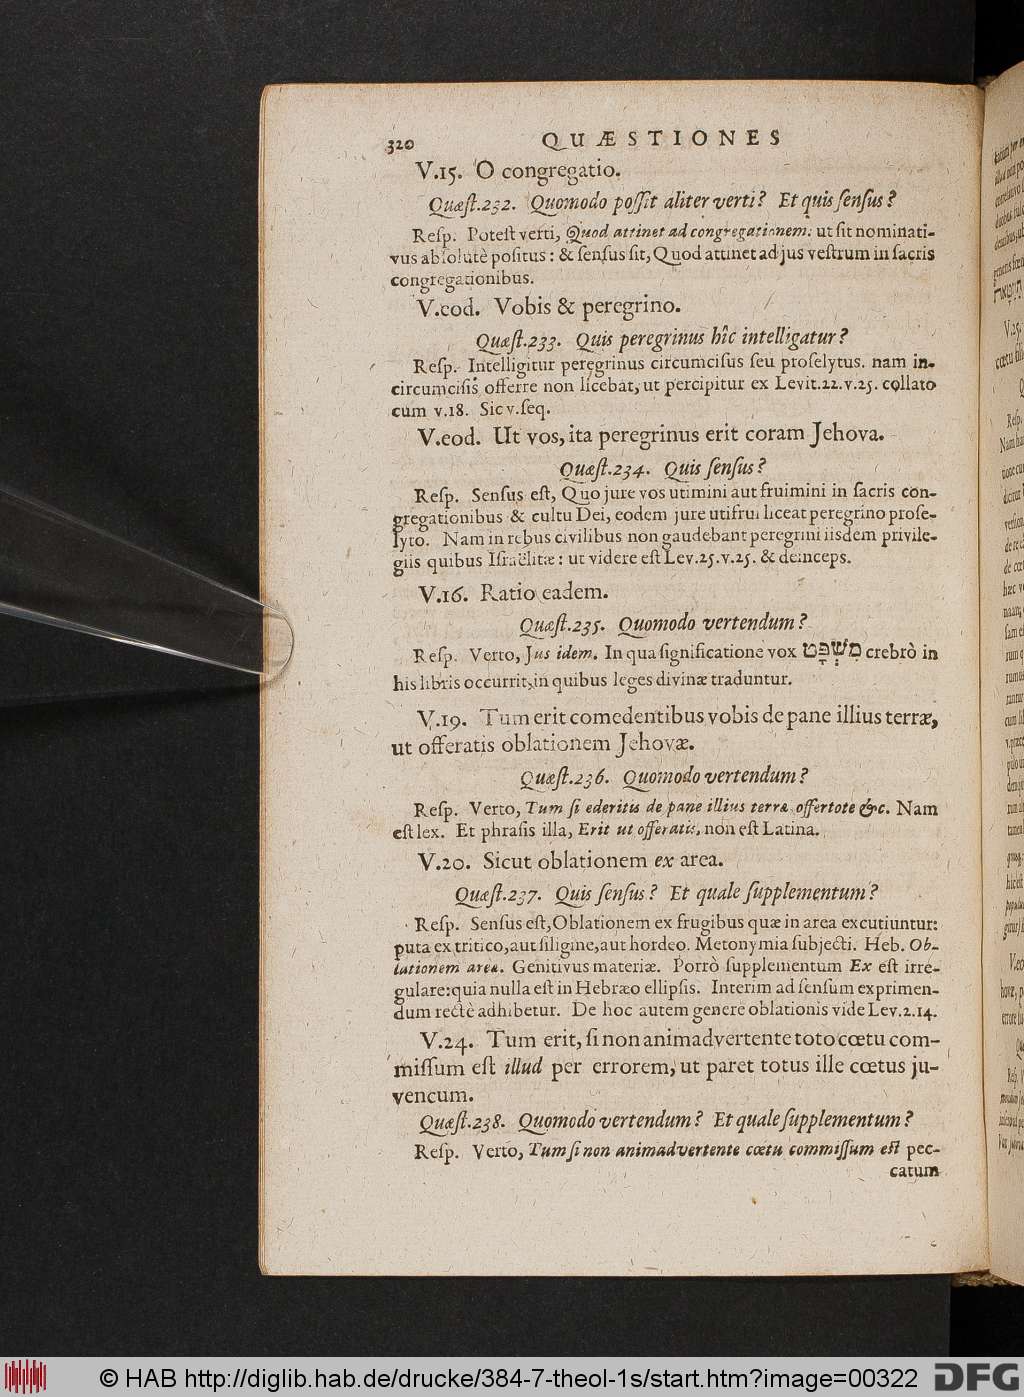 320 QUÆSTIONES
V.15. O congregatio.
Quæſt.232. Quomodo poſſit aliter verti? Et quis ſenſus?
Reſp. Poteſt verti, Quod attinet ad congregationem: ut ſit nominati-
vus abſolutè poſitus: & ſenſus ſit, Quod attinet ad jus veſtrum in ſacris
congregationibus.
V.eod. Vobis & peregrino.
Quæſt.233. Quis peregrinus hîc intelligatur?
Reſp. Intelligitur peregrinus circumciſus ſeu proſelytus. nam in-
circumciſis offerre non licebat, ut percipitur ex Levit.22.v.25. collato
cum v.18. Sic v.ſeq.
V.eod. Ut vos, ita peregrinus erit coram Jehova.
Quæſt.234. Quis ſenſus?
Reſp. Senſus eſt, Quo jure vos utimini aut fruimini in ſacris con-
gregationibus & cultu Dei, eodem jure uti frui liceat peregrino proſe-
lyto. Nam in rebus civilibus non gaudebant peregrini iisdem privile-
giis quibus Iſraëlitæ: ut videre eſt Lev.25.v.25. & deinceps.
V.16. Ratio eadem.
Quæſt.235. Quomodo vertendum?
Reſp. Verto, Jus idem. In qua ſignificatione vox מִשְׁפָּט crebrò in
his libris occurrit, in quibus leges divinæ traduntur.
V.19. Tum erit comedentibus vobis de pane illius terræ,
ut offeratis oblationem Jehovæ.
Quæſt.236. Quomodo vertendum?
Reſp. Verto, Tum ſi ederitis de pane illius terræ offertote &c. Nam
eſt lex. Et phraſis illa, Erit ut offeratis, non eſt Latina.
V.20. Sicut oblationem ex area.
Quæſt.237. Quis ſenſus? Et quale ſupplementum?
Reſp. Senſus eſt, Oblationem ex frugibus quæ in area excutiuntur:
puta ex tritico, aut ſiligine, aut hordeo. Metonymia ſubjecti. Heb. Ob-
lationem areæ. Genitivus materiæ. Porrò ſupplementum Ex eſt irre-
gulare: quia nulla eſt in Hebræo ellipſis. Interim ad ſenſum exprimen-
dum rectè adhibetur. De hoc autem genere oblationis vide Lev.2.14.
V.24. Tum erit, ſi non animadvertente toto cœtu com-
miſſum eſt illud per errorem, ut paret totus ille cœtus ju-
vencum.
Quæſt.238. Quomodo vertendum? Et quale ſupplementum?
Reſp. Verto, Tum ſi non animadvertente cœtu commiſſum eſt pec-
catum
© HAB http://diglib.hab.de/drucke/384-7-theol-1s/start.htm?image=00322
DFG